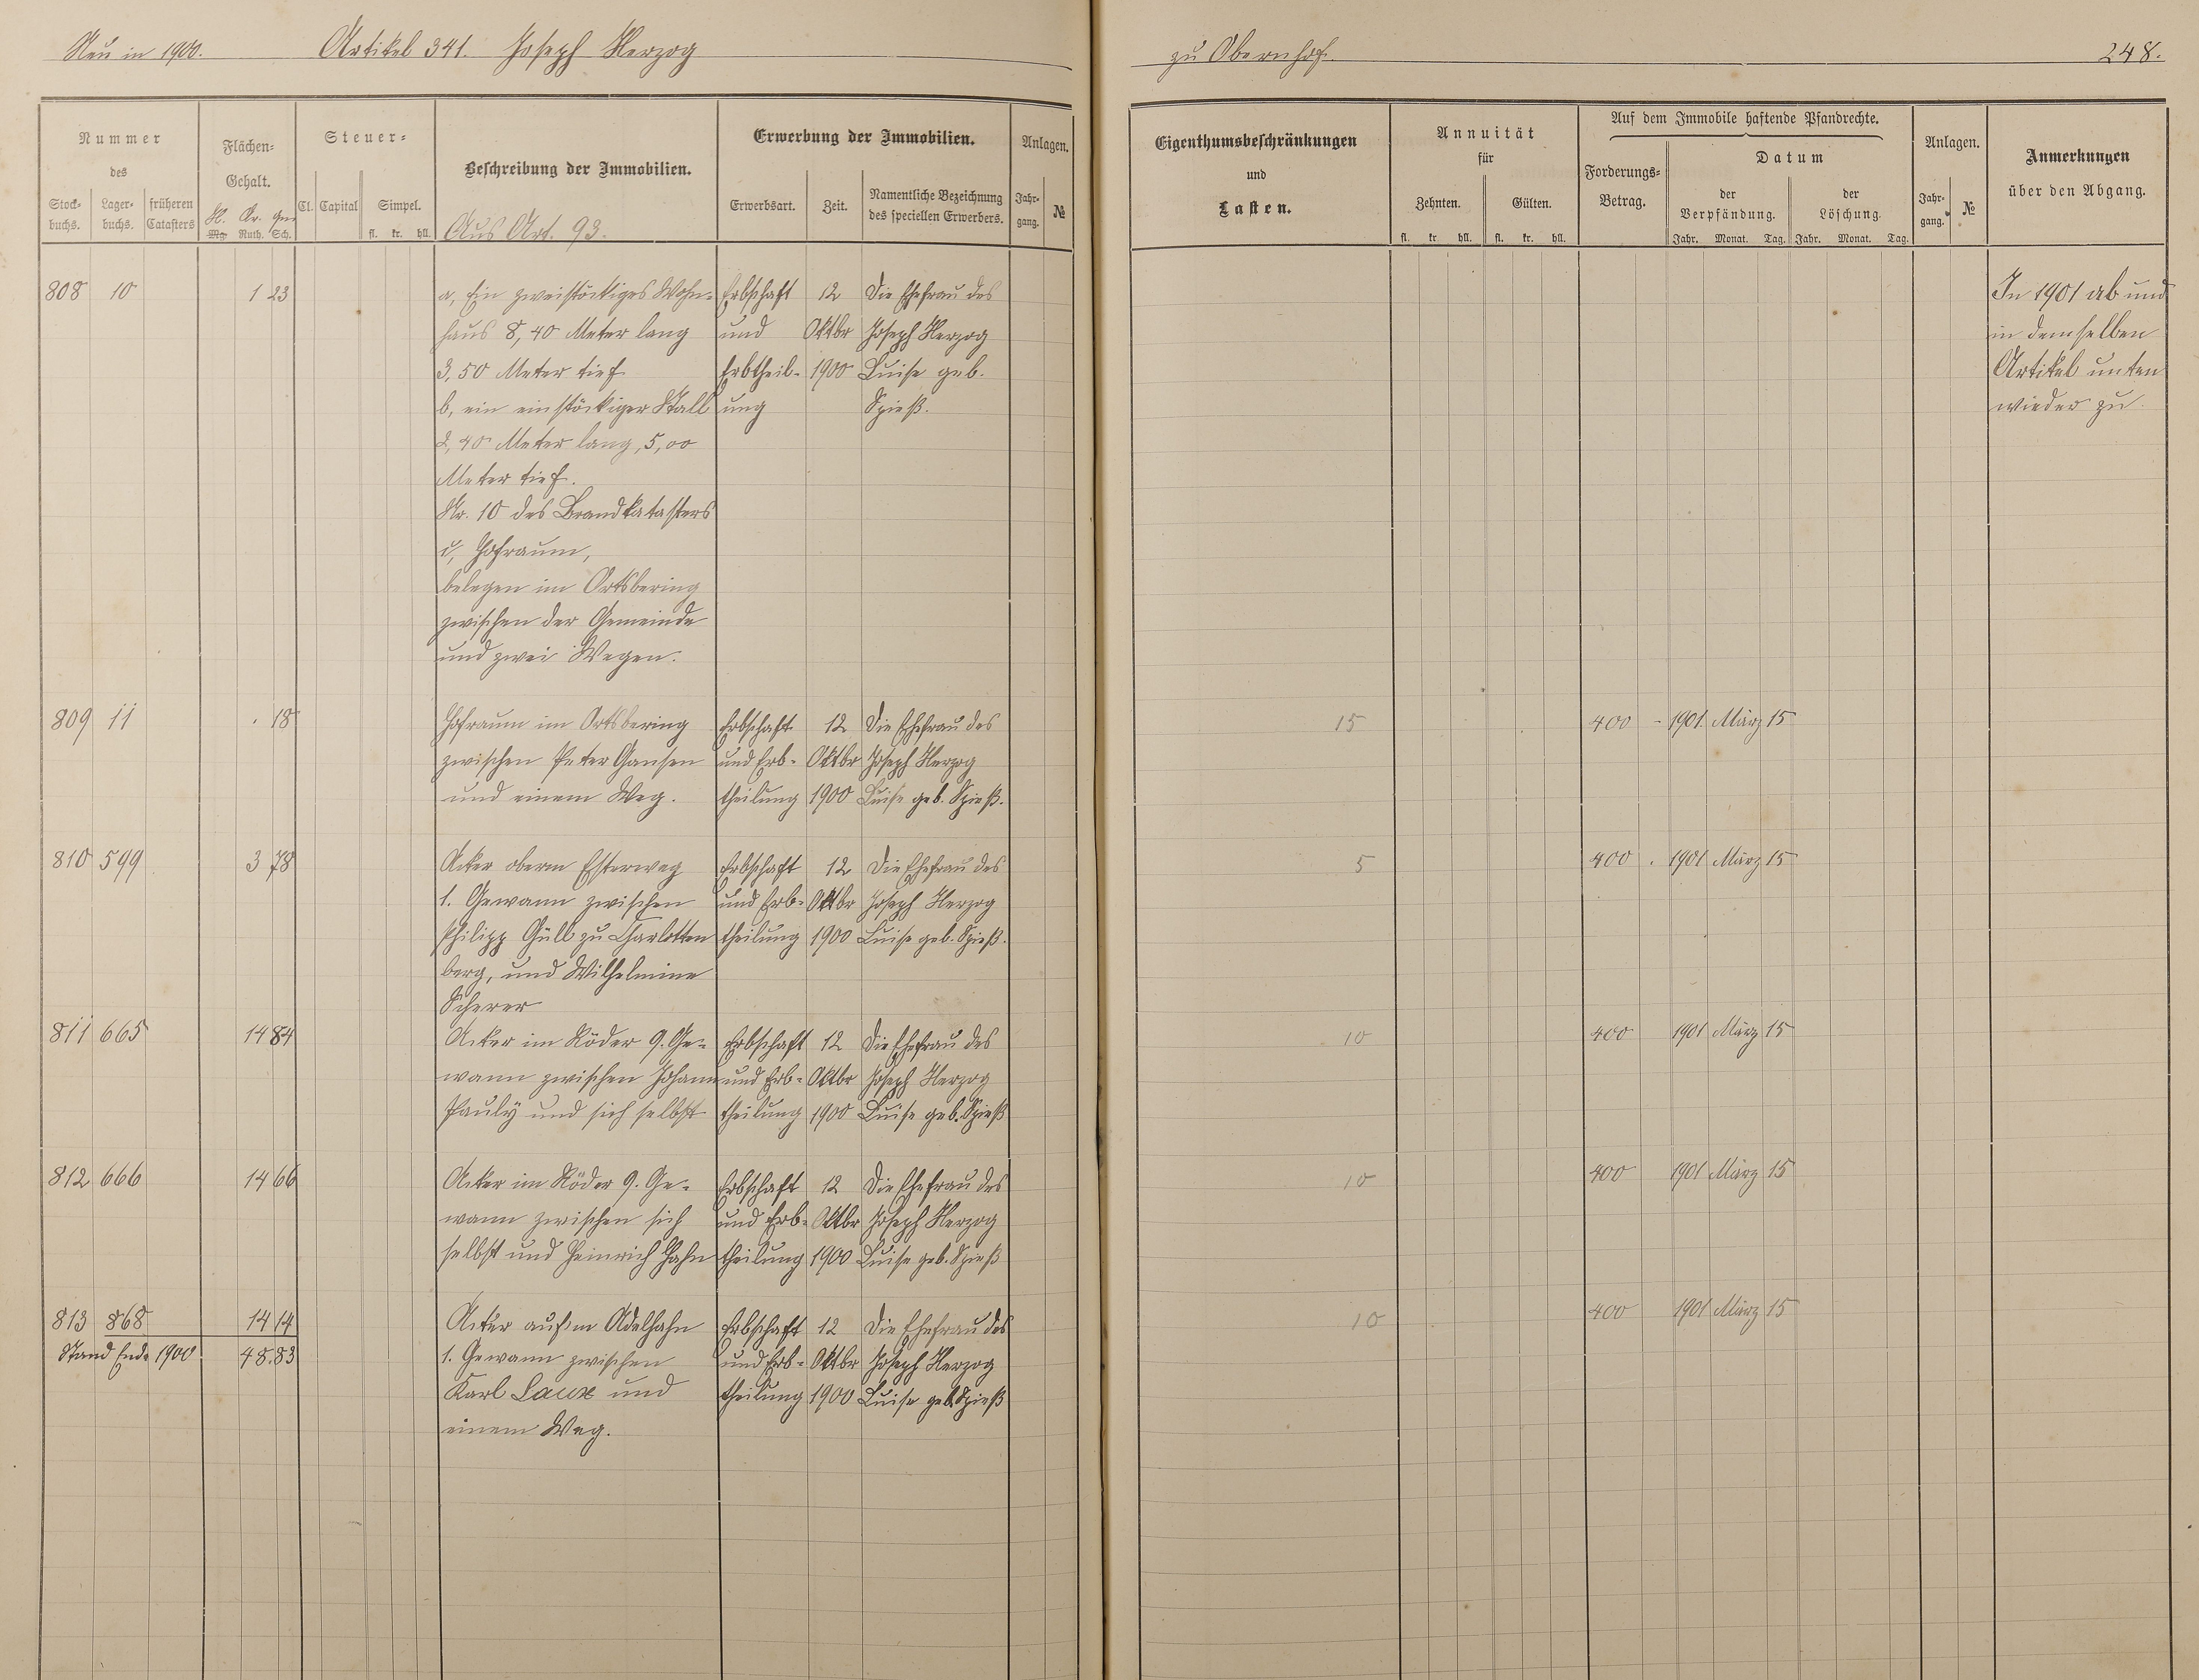 Neu in 1900. Artikel 341. Joseph Herzog
Nummer
des
Stock-
buchs.
Lager-
buchs.
früheren
Catasters
Flächen-
Gehalt.
H. Ar. Qm
Mg. Ruth. Sch.
Steuer-
Cl. Capital Simpel.
fl. kr. hll.
Beschreibung der Immobilien.
Aus Art. 93.
Erwerbung der Immobilien.
Erwerbsart. Zeit.
Namentliche Bezeichnung
des speciellen Erwerbers.
Anlagen.
Jahr-
gang.
№
808 10 1 23 a, Ein zweistöckiges Wohn- Erbschaft 12 Die Ehefrau des
haus 8,40 Meter lang und Oktbr Joseph Herzog
3,50 Meter tief Erbtheil- 1900 Luise geb.
b, ein einstöckiger Stall ung Spieß.
2,40 Meter lang, 5,00
Meter tief.
Nr. 10 des Brandkatasters
c, Hofraum,
belegen im Ortsbering
zwischen der Gemeinde
und zwei Wegen.
809 11 . 18 Hofraum im Ortsbering Erbschaft 12 Die Ehefrau des
zwischen Peter Gansen und Erb- Oktbr Joseph Herzog
und einem Weg. theilung 1900 Luise geb. Spieß.
810 599 3 78 Acker oberm Esterweg Erbschaft 12 Die Ehefrau des
1. Gewann zwischen und Erb- Oktbr Joseph Herzog
Philipp Güll zu Charlotten theilung 1900 Luise geb. Spieß.
berg, und Wilhelmine
Scherer
811 665 14 84 Acker im Röder 9. Ge- Erbschaft 12 Die Ehefrau des
wann zwischen Johann und Erb- Oktbr Joseph Herzog
Pauly und sich selbst theilung 1900 Luise geb. Spieß
812 666 14 66 Acker im Röder 9. Ge- Erbschaft 12 Die Ehefrau des
wann zwischen sich und Erb- Oktbr Joseph Herzog
selbst und Heinrich Hahn theilung 1900 Luise geb. Spieß
813 868 14 14 Acker auf'm Adelhahn Erbschaft 12 Die Ehefrau des
Stand Ende 1900 48.83 1. Gewann zwischen und Erb- Oktbr Joseph Herzog
Karl Laux und theilung 1900 Luise geb. Spieß
einem Weg.
zu Obernhof. 248.
Eigenthumsbeschränkungen
und
Lasten.
Annuität
für
Zehnten. Gülten.
fl. kr. hll. fl. kr. hll.
Auf dem Immobile haftende Pfandrechte.
Forderungs-
Betrag.
Datum
der
Verpfändung.
der
Löschung.
Jahr. Monat. Tag. Jahr. Monat. Tag.
Anlagen.
Jahr-
gang.
№
Anmerkungen
über den Abgang.
In 1901 ab und
in demselben
Artikel unten
wieder zu.
15 400 - 1901. März 15
5 400 . 1901 März 15
10 400 1901 März 15
10 400 1901 März 15
10 400 1901 März 15